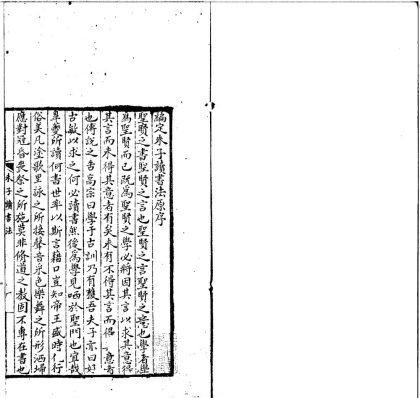 編定朱子讀書法原序
聖賢之書聖賢之言也聖賢之言聖賢之心也學者學
為聖賢而已既為聖賢之學必將因其言以求其意得
其言而未得其意者有矣未有不得其言而得其意者
也傳說之告高宗曰學于古訓乃有獲吾夫子亦曰好
古敏以求之何必讀書然後為學見哂於聖門也宜哉
皐夔所讀何書世率以斯言藉口豈知帝王盛時化行
俗美凡塗歌里詠之所接聲音采色樂舞之所形洒埽
應對冠昏喪祭之所施莫非脩道之教固不專在書也
朱子讀書法